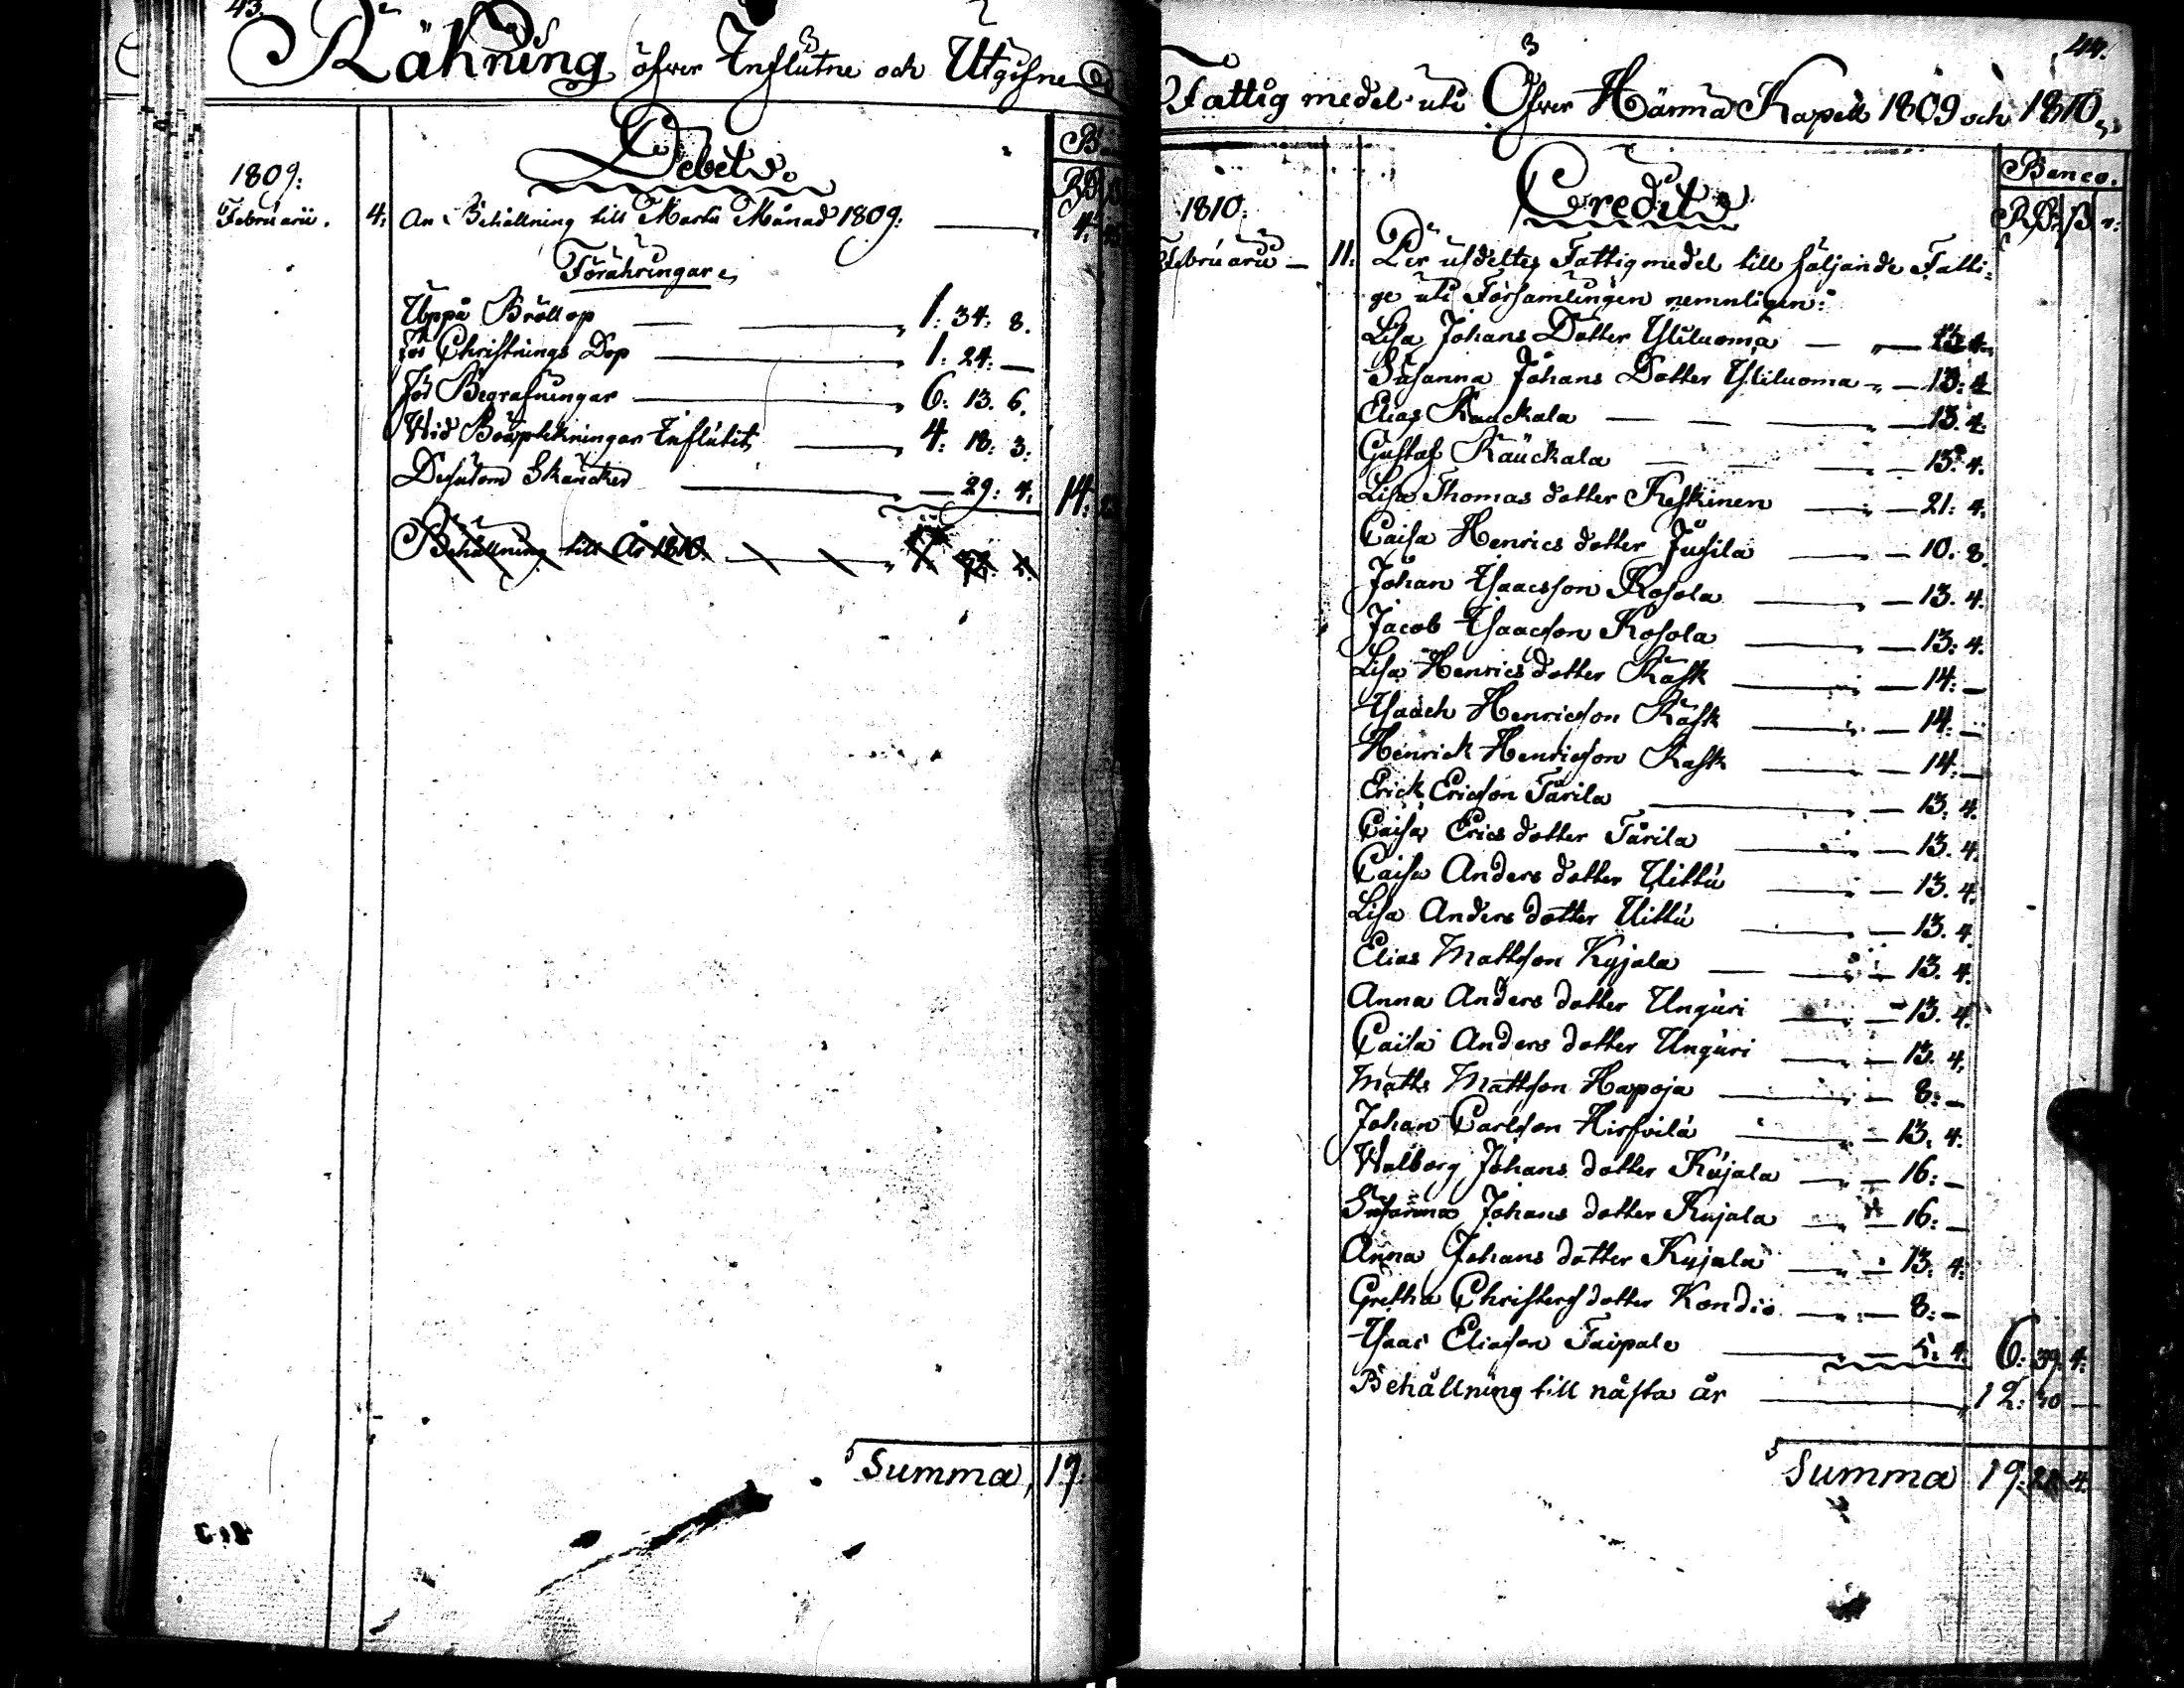 43.
Räkning öfver Influtne och Utgifne
Debet.
B
RD
1809:
Februarii. 4. An Behållning till Martii Månad 1809: 4.
Förähringar
Uppå Bröllop 1: 34: 8.
för Christnings Dop 1: 24: —
för Begrafningar 6: 13. 6.
Wid Influtit 4: 18: 3:
Desutom Skäncker — 29: 4. 14:
Behållning till År 1810.
Summa, 19
44.
Fattig medel uti Öfver Härmä Kapell 1809 och 1810
Credit
Banco.
RD: ß r:
1810:
Februarii — 11: Per utdeltes Fattigmedel till följande Fatti-
ge uti Församlingen nemnligen:
Lisa Johans Dotter Yliluoma — 13 4
Susanna Johans Dotter Yliluoma — 13: 4
Elias Rauckala — 13. 4.
Gustaf Rauckala — 13: 4.
Lisa Thomas dotter Keskinen — 21: 4.
Caisa Henrics dotter Jusila — 10. 8.
Johan Isaacsson Kosola — 13. 4.
Jacob Isaacson Kosola — 13: 4.
Lisa Henrics dotter Rask — 14: —
Isaach Henricson Rask — 14: —
Henrick Henricson Rask — 14: —
Erick Ericson Tarila — 13: 4.
Caisa Erics dotter Tarila — 13. 4.
Caisa Anders dotter Uittu — 13. 4.
Lisa Anders dotter Uittu — 13. 4.
Elias Mattsson Kujala — 13. 4.
Anna Anders dotter Unguri — 13. 4.
Caisa Anders dotter Unguri — 13. 4.
Matts Mattsson Hapoja — 8: —
Johan Carlsson Hirsvilä — 13. 4.
Walborg Johans dotter Kujala — 16: —
Susanna Johans dotter Kujala — 16: —
Anna Johans dotter Kujala — 13: 4:
Gretha Christers dotter Kondio — 8: —
Isaac Eliasson Taipale — 5: 4. 6: 39: 4:
Behållning till nästa år 12: 30 —
Summa 19: 21 4.